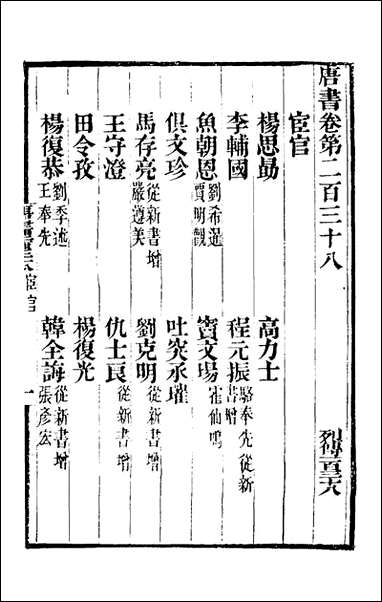 唐書卷第二百三十八 列傳一百三十八
宦官
楊思勗 高力士
李輔國 程元振 駱奉先從新書增
魚朝恩 劉希暹 賈明觀 竇文塲 霍仙鳴
俱文珍 吐突承璀
馬存亮 從新書增 嚴遵美 劉克明 從新書增
王守澄 仇士良 從新書增
田令孜 楊復光
楊復恭 劉季述 王奉先 韓全誨 從新書增 張彥宏
宦官 一